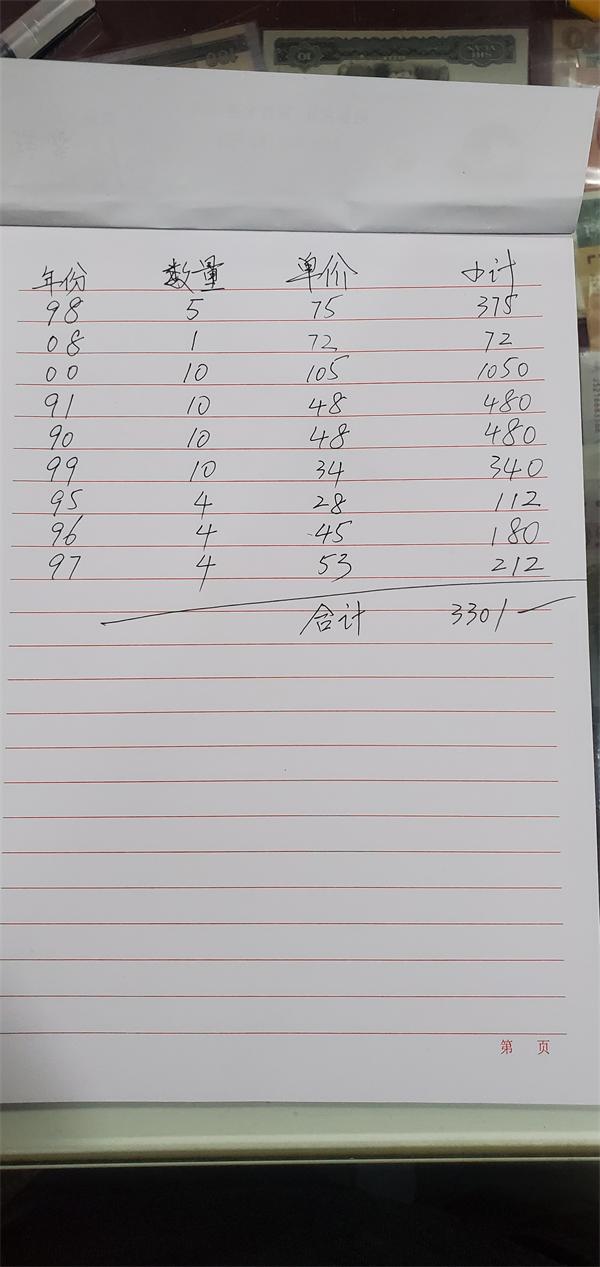 年份 数量 单价 小计
98 5 75 375
08 1 72 72
00 10 105 1050
91 10 48 480
90 10 48 480
99 10 34 340
95 4 28 112
96 4 45 180
97 4 53 212
合计 3301
第 页